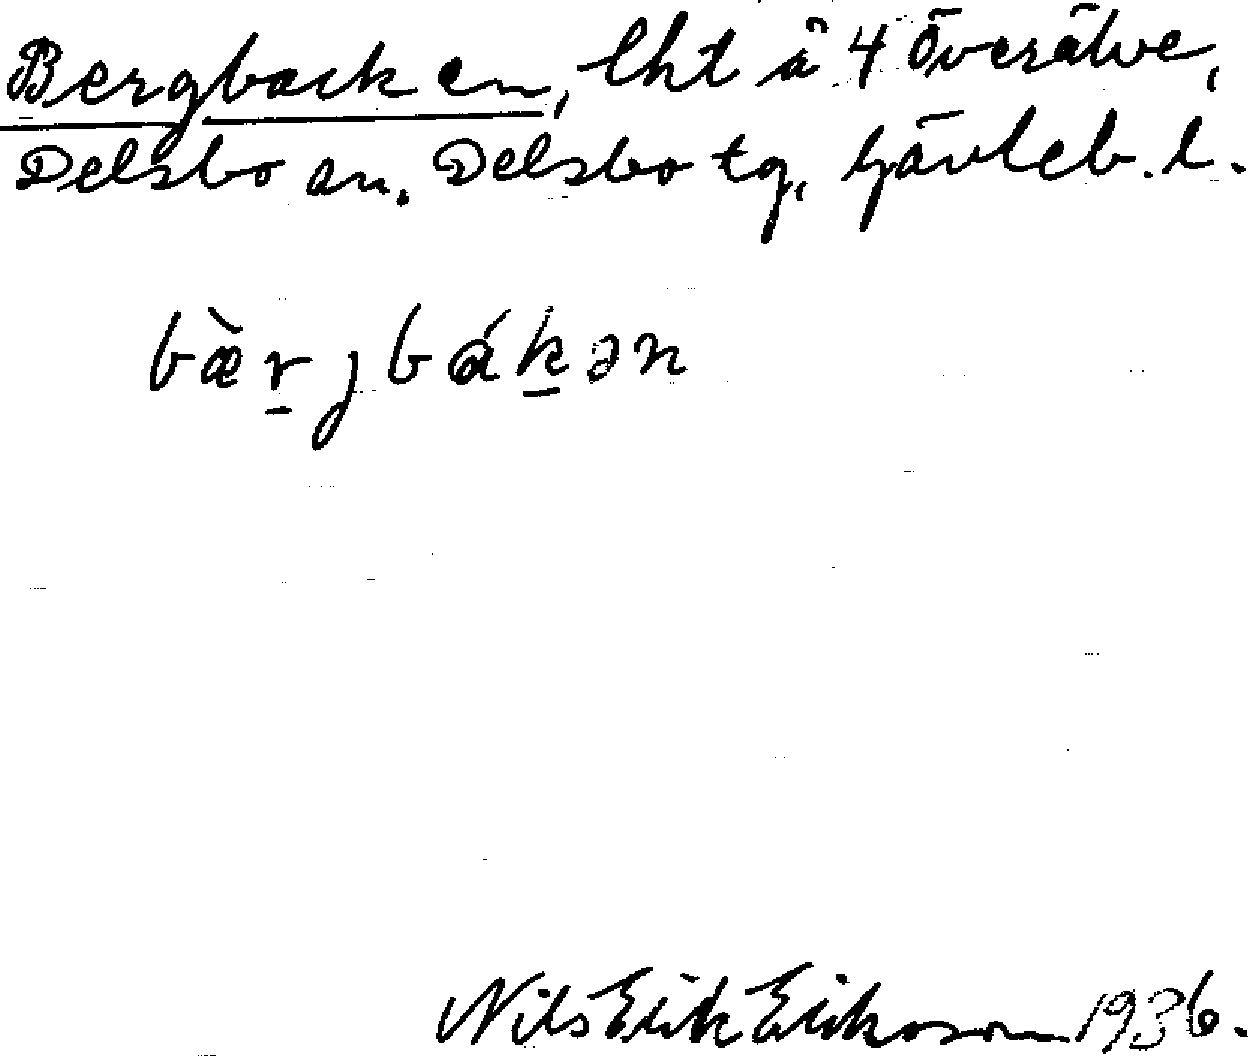 Bergbacken, lht å 4 Överälve,
Delsbo sn. Delsbo tg, Gävleb. l.
bæ̀r̠jbák̠ən
Nils Erik Eriksson 1936.